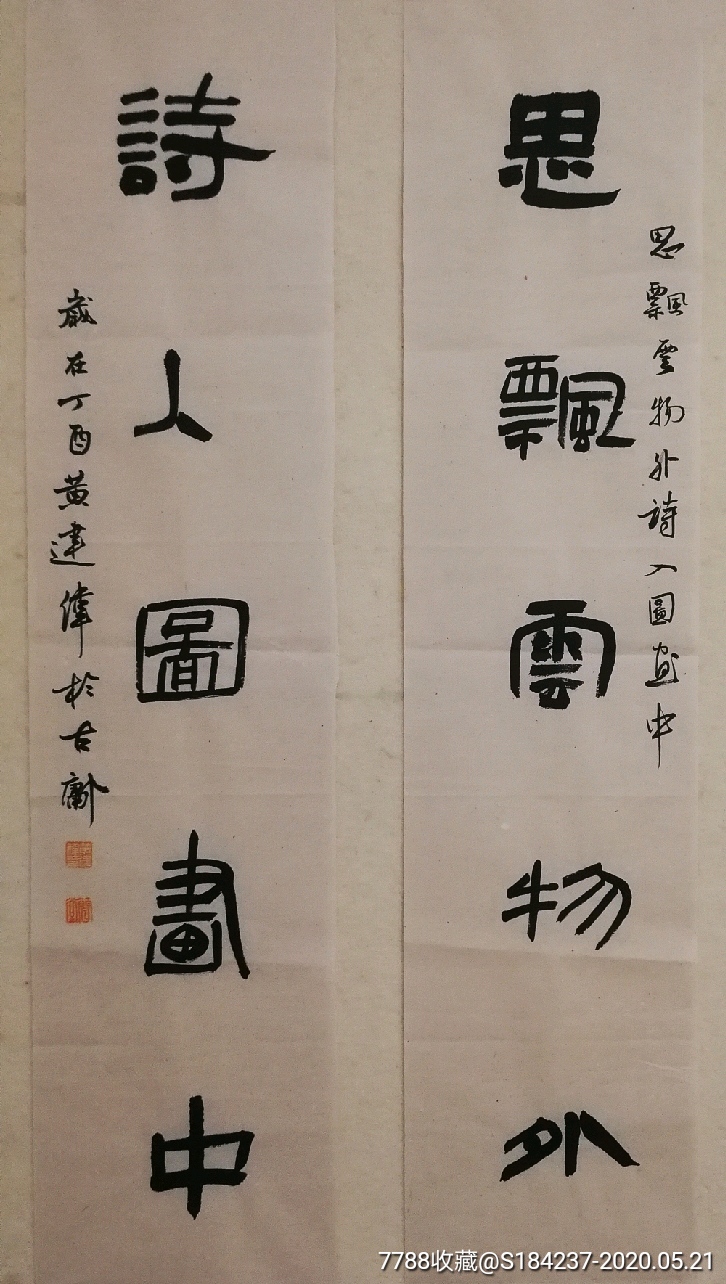 思飄雲物外
思飄雲物外詩入圖畫中
詩入圖畫中
歲在丁酉黄建偉於古
7788收藏@S184237-2020.05.21